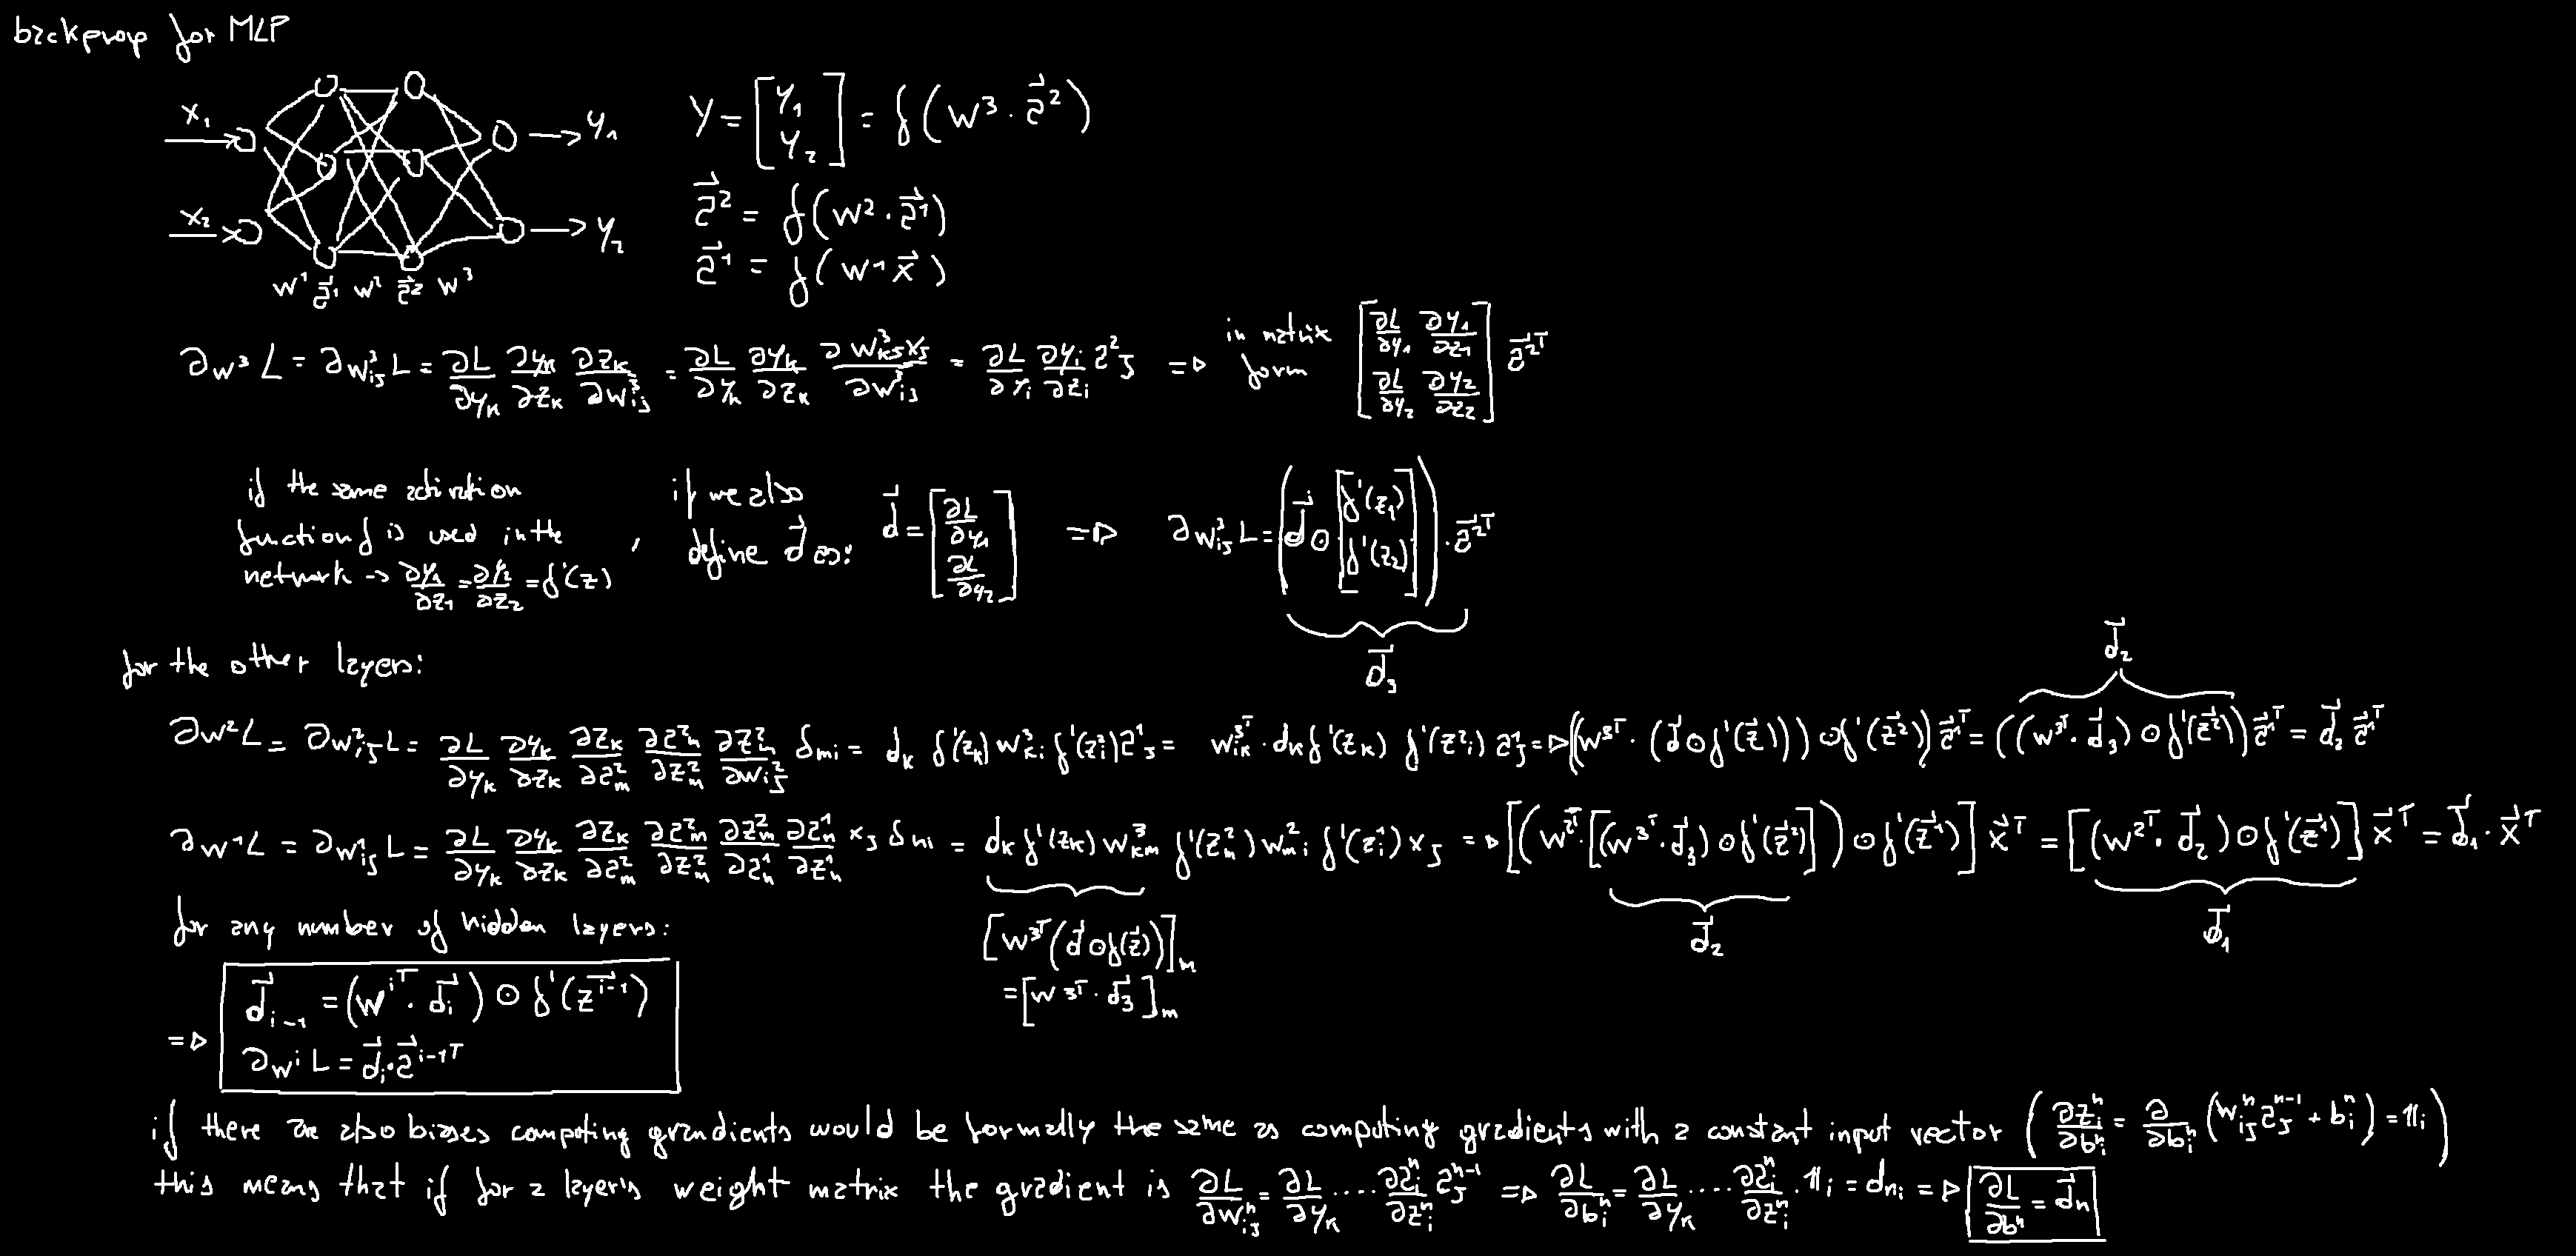 backprop for MLP
x₁ → y₁
x₂ → y₂
w¹ a⃗¹ w² a⃗² w³
Y = [y₁ y₂] = f(w³ · a⃗²)
a⃗² = f(w² · a⃗¹)
a⃗¹ = f(w¹ x⃗)
∂w³ L = ∂w³ᵢⱼ L = ∂L/∂yₖ ∂yₖ/∂zₖ ∂zₖ/∂w³ᵢⱼ = ∂L/∂yₖ ∂yₖ/∂zₖ ∂w³ₖⱼxⱼ/∂w³ᵢⱼ = ∂L/∂yᵢ ∂yᵢ/∂zᵢ a²ⱼ => in matrix form [∂L/∂y₁ ∂y₁/∂z₁ ; ∂L/∂y₂ ∂y₂/∂z₂] a⃗²ᵀ
if the same activation
function f is used in the
network -> ∂y₁/∂z₁ = ∂y₂/∂z₂ = f'(z)
, if we also
define d⃗ as: d⃗ = [∂L/∂y₁ ; ∂L/∂y₂] => ∂w³ᵢⱼ L = (d⃗ ⊙ [f'(z₁) ; f'(z₂)]) · a⃗²ᵀ
d⃗₃
for the other layers:
d⃗₂
∂w² L = ∂w²ᵢⱼ L = ∂L/∂yₖ ∂yₖ/∂zₖ ∂zₖ/∂a²ₘ ∂a²ₘ/∂z²ₘ ∂z²ₘ/∂w²ᵢⱼ δₘᵢ = dₖ f'(zₖ) w³ₖᵢ f'(z²ᵢ) a¹ⱼ = w³ᵀᵢₖ · dₖ f'(zₖ) f'(z²ᵢ) a¹ⱼ => ((w³ᵀ · (d⃗ ⊙ f'(z⃗))) ⊙ f'(z⃗²)) a⃗¹ᵀ = ((w³ᵀ · d⃗₃) ⊙ f'(z⃗²)) a⃗¹ᵀ = d⃗₂ a⃗¹ᵀ
∂w¹ L = ∂w¹ᵢⱼ L = ∂L/∂yₖ ∂yₖ/∂zₖ ∂zₖ/∂a²ₘ ∂a²ₘ/∂z²ₘ ∂z²ₘ/∂a¹ₙ ∂a¹ₙ/∂z¹ₙ xⱼ δₙᵢ = dₖ f'(zₖ) w³ₖₘ f'(z²ₘ) w²ₘᵢ f'(z¹ᵢ) xⱼ => [(w²ᵀ · [(w³ᵀ · d⃗₃) ⊙ f'(z⃗²)]) ⊙ f'(z⃗¹)] x⃗ᵀ = [(w²ᵀ · d⃗₂) ⊙ f'(z⃗¹)] x⃗ᵀ = d⃗₁ · x⃗ᵀ
[w³ᵀ(d⃗ ⊙ f(z⃗))]ₘ
= [w³ᵀ · d⃗₃]ₘ
d⃗₂
d⃗₁
for any number of hidden layers:
=> d⃗ᵢ₋₁ = (wⁱᵀ · d⃗ᵢ) ⊙ f'(z⃗ⁱ⁻¹)
∂wⁱ L = d⃗ᵢ · a⃗ⁱ⁻¹ᵀ
if there are also biases computing grandients would be formally the same as computing gradients with a constant input vector (∂zⁿᵢ/∂bⁿᵢ = ∂/∂bⁿᵢ (wⁿᵢⱼ aⁿ⁻¹ⱼ + bⁿᵢ) = 𝟙ᵢ)
this means that if for a layer's weight matrix the gradient is ∂L/∂wⁿᵢⱼ = ∂L/∂yₖ .... ∂aⁿᵢ/∂zⁿᵢ aⁿ⁻¹ⱼ => ∂L/∂bⁿᵢ = ∂L/∂yₖ .... ∂aⁿᵢ/∂zⁿᵢ · 𝟙ᵢ = dₙᵢ => ∂L/∂bⁿ = d⃗ₙ